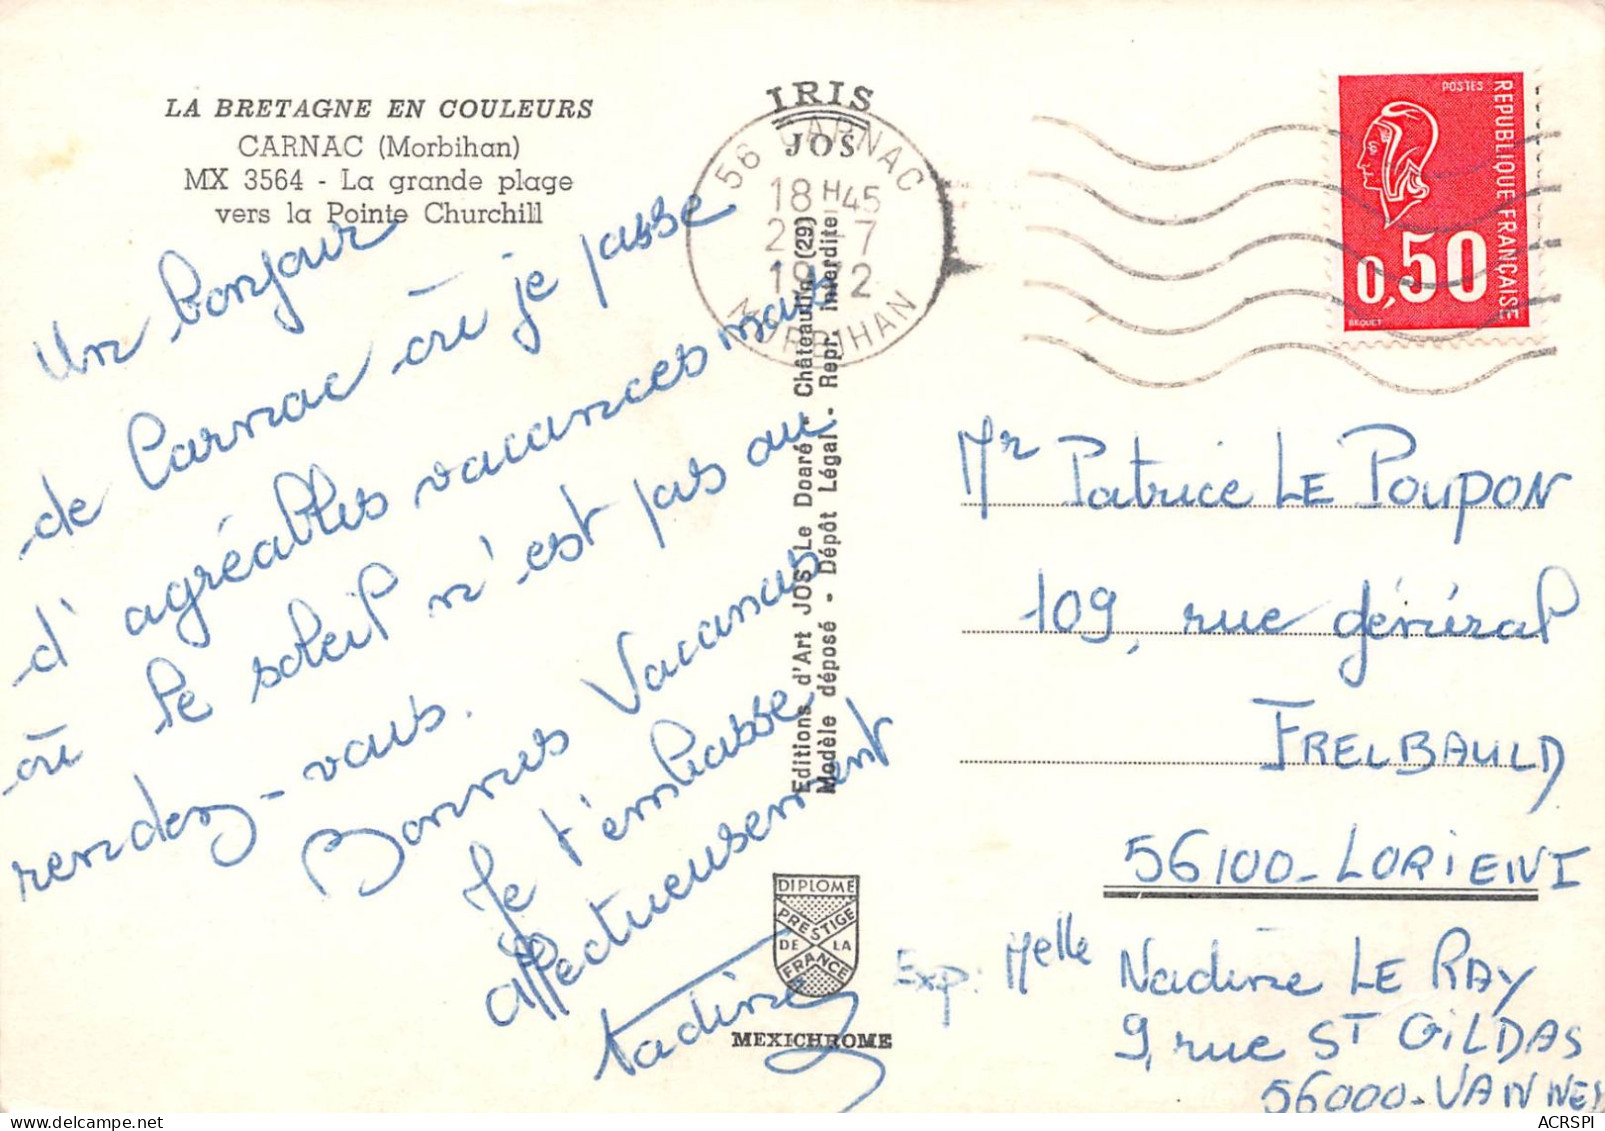 LA BRETAGNE EN COULEURS
CARNAC (Morbihan)
MX 3564 - La grande plage
vers la Pointe Churchill
IRIS
JOS
56 CARNAC
18 H45
7
1972
MORBIHAN
POSTES
REPUBLIQUE FRANÇAISE
0,50
BEQUET
Un bonjour
de Carnac où je passe
d'agréables vacances mais
où le soleil n'est pas au
rendez-vous.
Bonnes Vacances
Je t'embrasse
affectueusement
Nadine
Editions d'Art JOS Le Doaré - Châteaulin (29)
Modèle déposé - Dépôt Légal - Repr. interdite
DIPLOME
PRESTIGE
DE LA
FRANCE
MEXICHROME
Mr Patrice LE POUPON
109, rue général
FRELBAULD
56100-LORIENT
Exp: Melle Nadine LE RAY
9, rue ST GILDAS
56000-VANNES
ACRSPI